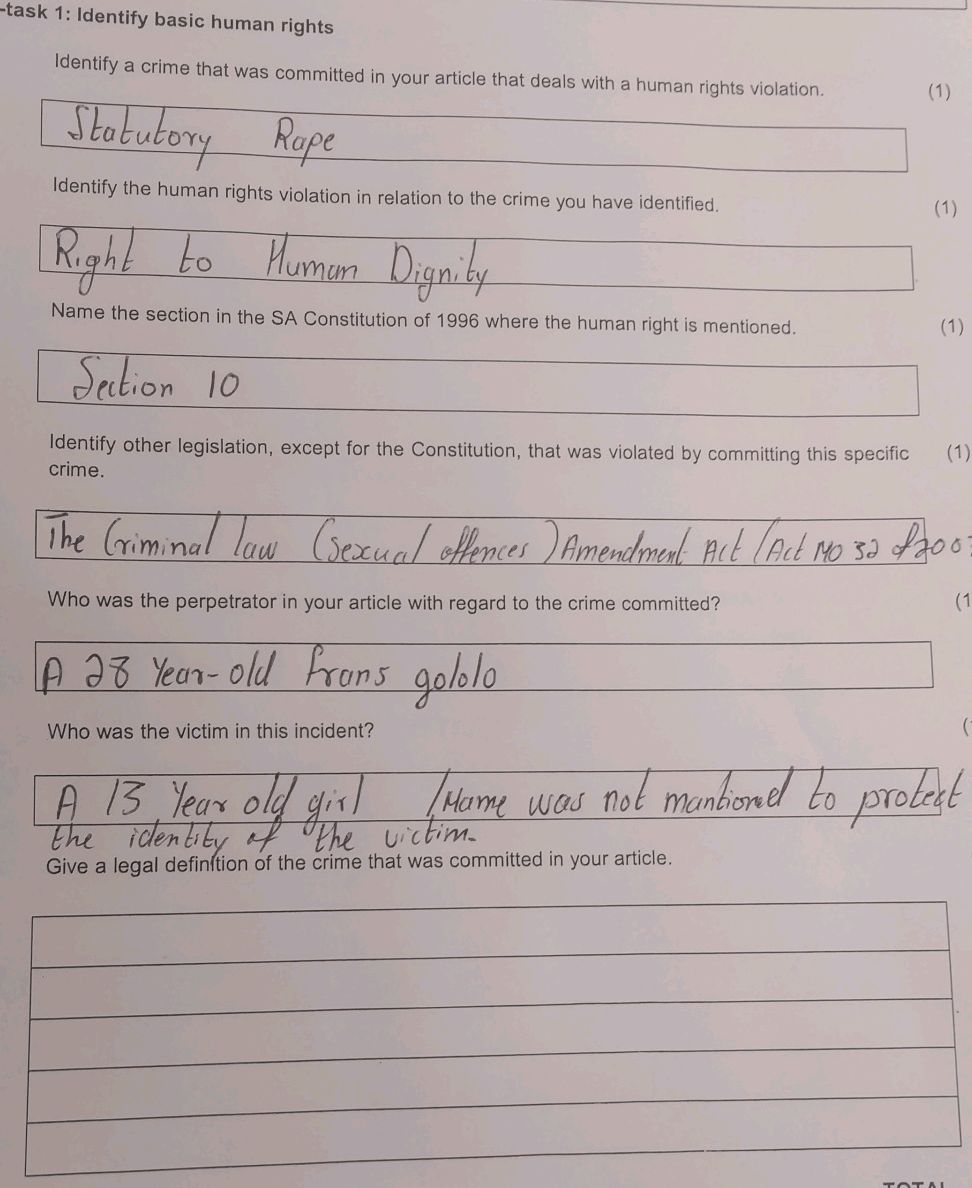 -task 1: Identify basic human rights
Identify a crime that was committed in your article that deals with a human rights violation. (1)
Statutory Rape
Identify the human rights violation in relation to the crime you have identified. (1)
Right to Human Dignity
Name the section in the SA Constitution of 1996 where the human right is mentioned. (1)
Section 10
Identify other legislation, except for the Constitution, that was violated by committing this specific (1)
crime.
The Criminal law (sexual offences) Amendment Act (Act No 32 of 200
Who was the perpetrator in your article with regard to the crime committed? (1
A 28 Year-old frans gololo
Who was the victim in this incident? (
A 13 Year old girl /Name was not mantioned to protect
the identity of the victim.
Give a legal definition of the crime that was committed in your article.
TOTAL